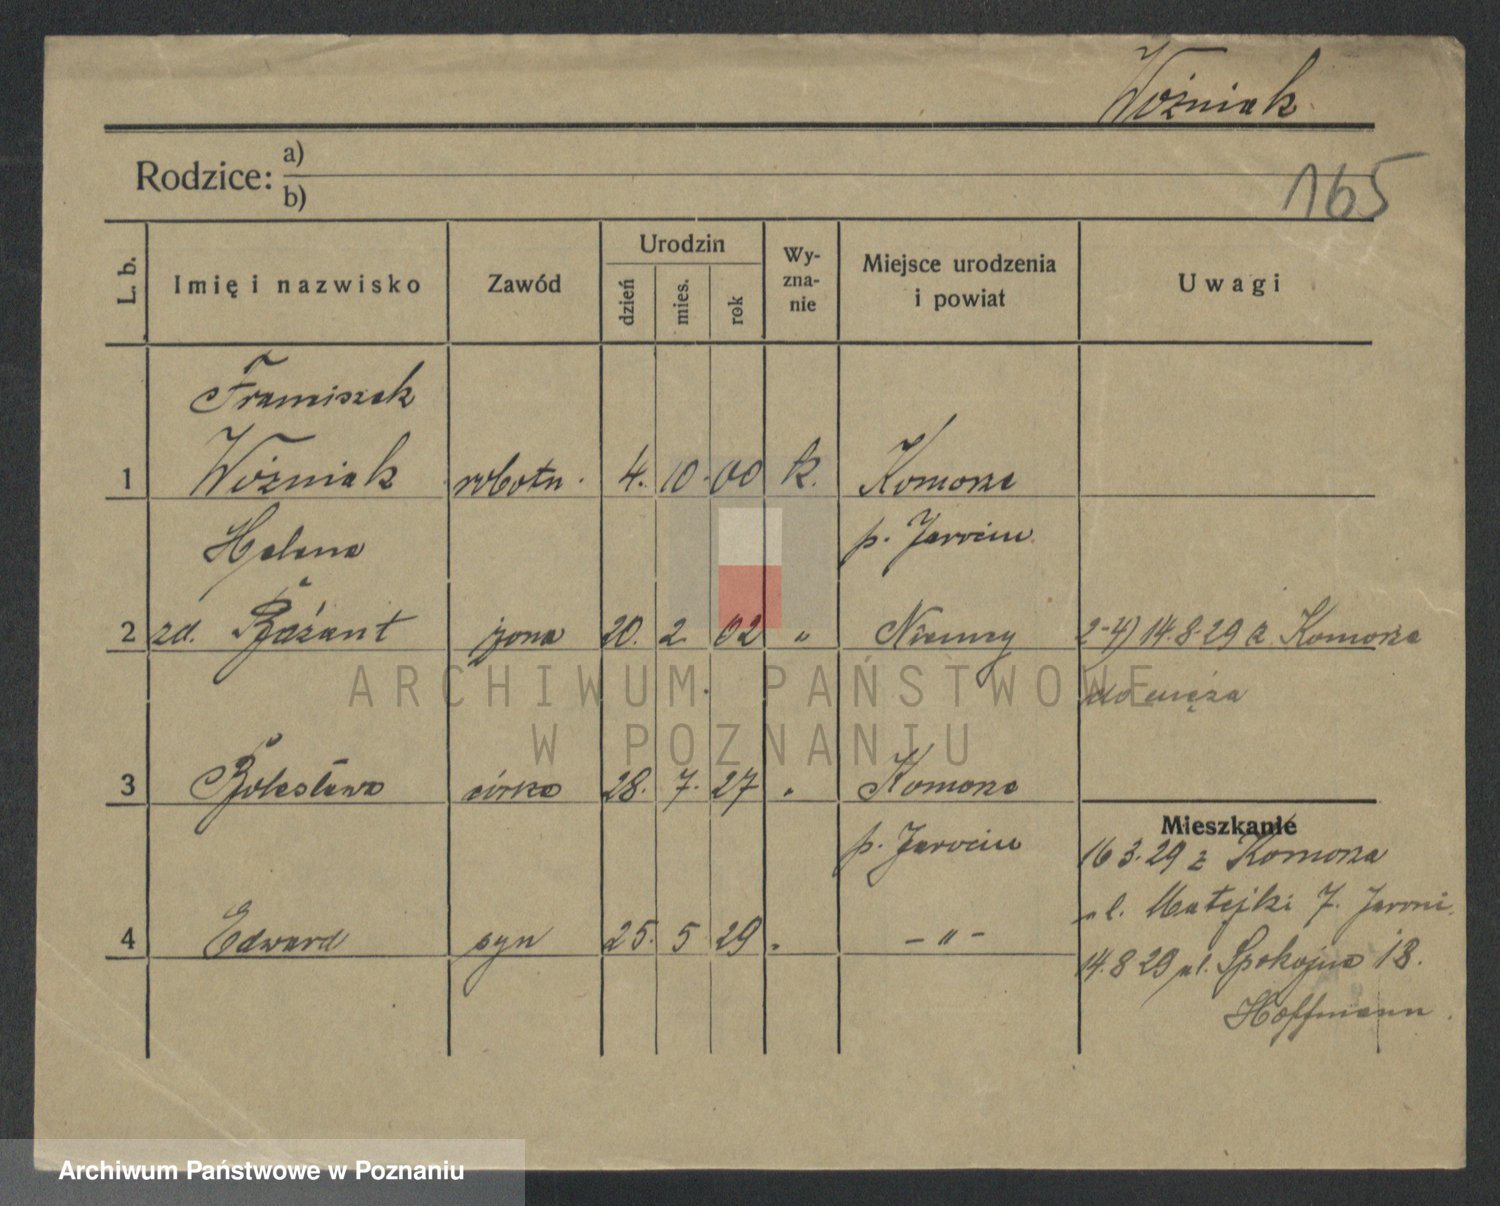 Woźniak
165
Rodzice: a)
b)
L. b. Imię i nazwisko Zawód Urodzin dzień mies. rok Wy-zna-nie Miejsce urodzenia i powiat Uwagi
Franciszek
1 Woźniak robotn. 4. 10. 00 k. Komorze
Helena p. Jarocin
2 zd. Bażant żona 20. 2. 02 " Niemcy 2-4) 14.8.29 z Komorza
do męża
3 Bolesława córka 28. 7. 27 " Komorze
Mieszkanie
p. Jarocin 16 3.29 z Komorza
ul. Matejki 7. Jaroci.
4 Edward syn 25. 5 29 " – " –
14.8 29 ul. Spokojna 18.
Hoffmann.
ARCHIWUM PAŃSTWOWE
W POZNANIU
Archiwum Państwowe w Poznaniu